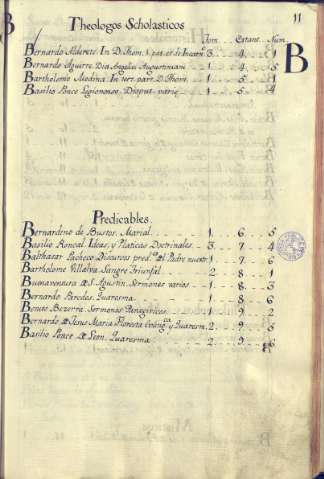 11
Theologos Scholasticos
Tom. Estant. Num.
B
Bernardo Alderete In D. Thom. 3. pat. et de Incarn. 3 4 1
Bernardo Aguirre Dia Angelici Augustiniani 1 4 5
Bartholome Medina In ter. part. D. Thom. 1 5 1
Basilio Ponce Legionense Disput. varie 1 5 4
Predicables
Bernardino de Bustos. Marial. 1 6 5
Basilio Roncal Ideas, y Platicas Doctrinales. 3 7 4
Balthasar Pacheco Discursos pred. Padre nuestr. 1 7 6
Bartholome Villalva Sangre Triunfal 2 8 1
Buenaventura de S. Agustin. Sermones varios 1 8 3
Bernardo Paredes Quaresma 1 8 6
Benito Bezerra. Sermones Panegiricos 1 9 2
Bernardo de Jesus Maria Floresta Evãng.ca y Quaresm. 2 9 5
Basilio Ponce de Leon. Quaresma 2 9 6